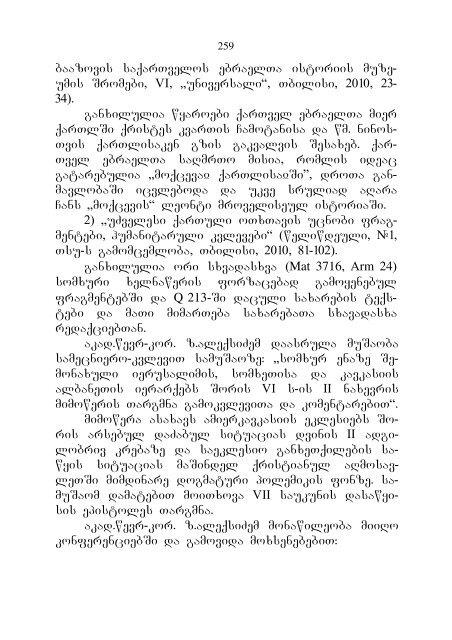 259
ბააზოვის საქართველოს ებრაელთა ისტორიის მუზე-
უმის შრომები, VI, „უნივერსალი“, თბილისი, 2010, 23-
34).
განხილულია წყაროები ქართველ ებრაელთა მიერ
ქართლში ქრისტეს კვართის ჩამოტანისა და წმ. ნინოს-
თვის ქართლისაკენ გზის გაკვალვის შესახებ. ქარ-
თველ ებრაელთა საღმრთო მისია, რომლის იდეაც
გატარებულია „მოქცევაჲ ქართლისაჲში”, დროთა გან-
მავლობაში იცვლებოდა და უკვე სრულიად აღარა
ჩანს „მოქცევის“ ლეონტი მროველისეულ ისტორიაში.
2) „უძველესი ქართული ოთხთავის უცნობი ფრაგ-
მენტები, ჰუმანიტარული კვლევები“ (წელიწდეული, №1,
თსუ-ს გამომცემლობა, თბილისი, 2010, 81-102).
განხილულია ორი სხვადასხვა (Mat 3716, Arm 24)
სომხური ხელნაწერის ფორზაცებად გამოყენებულ
ფრაგმენტებში და Q 213-ში დაცული სახარების ტექს-
ტები და მათი მიმართება სახარებათა სხავადასხა
რედაქციებთან.
აკად.წევრ-კორ. ზ.ალექსიძემ დაასრულა მუშაობა
სამეცნიერო-კვლევით სამუშაოზე: „სომხურ ენაზე შე-
მონახული იერუსალიმის, სომხეთისა და კავკასიის
ალბანეთის იერარქებს შორის VI ს-ის II ნახევრის
მიმოწერის თარგმნა გამოკვლევითა და კომენტარებით“.
მიმოწერა ასახავს ამიერკავკასიის ეკლესიებს შო-
რის არსებულ დაძაბულ სიტუაციას დვინის II ადგი-
ლობრივ კრებაზე და საეკლესიო განხეთქილების სა-
წყის სიტუაციას მაშინდელ ქრისტიანულ აღმოსავ-
ლეთში მიმდინარე დოგმატური პოლემიკის ფონზე. სა-
მუშაომ დამატებით მოითხოვა VII საუკუნის დასაწყი-
სის ეპისტოლეს თარგმნა.
აკად.წევრ-კორ. ზ.ალექსიძემ მონაწილეობა მიიღო
კონფერენციებში და გამოვიდა მოხსენებებით: